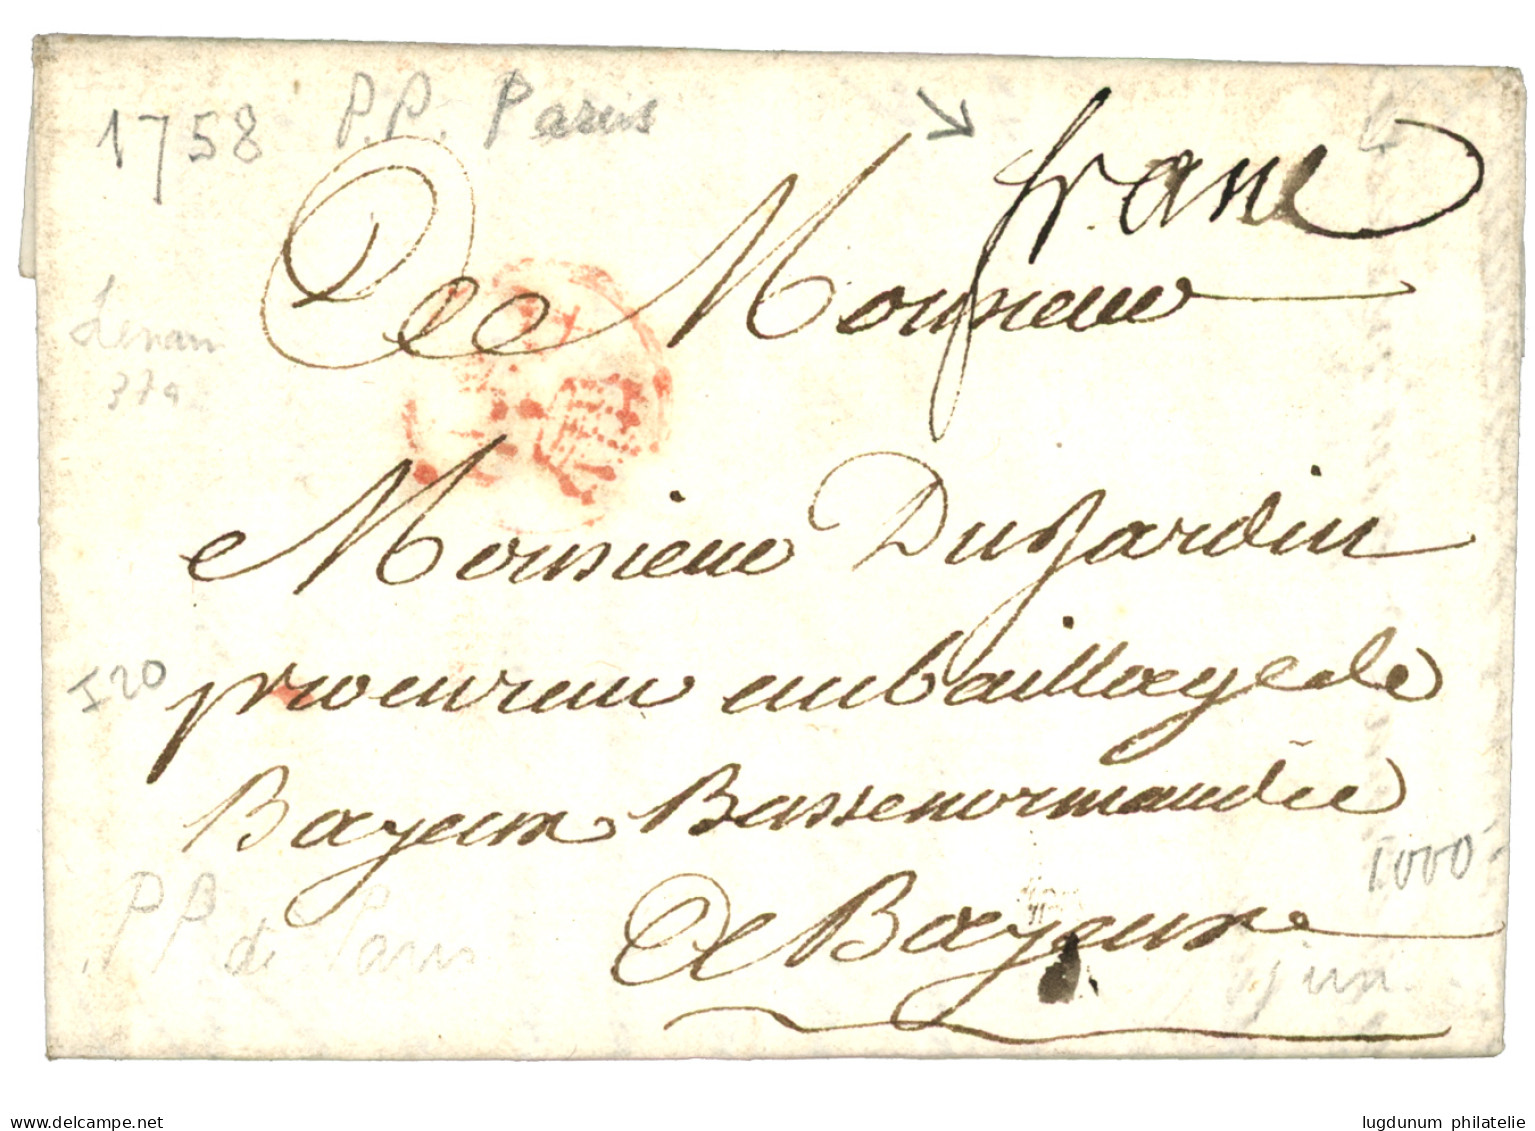 1758 P.P. Paris
franc
De Monsieur
Lenain
37a
Monsieur DuJardin
I20
procureur au bailliage de
Bayeux Basse normandie
1000-
PP de Paris
A Bayeux
delcampe.net
lugdunum philatelie